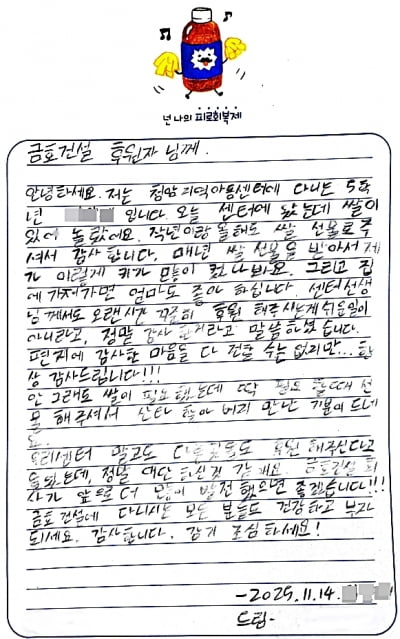 넌 나의 피로회복제
금호건설 후원자 님께.
안녕하세요. 저는 청암지역아동센터에 다니는 5학
년 입니다. 오늘 센터에 왔는데 쌀이
있어 놀랐어요. 작년이랑 올해도 쌀 선물로 주
셔서 감사합니다. 매년 쌀 선물을 받아서 제
가 이렇게 키가 많이 컸나봐요. 그리고 집
에 가져가면 엄마도 좋아 하십니다. 센터선생
님께서도 오랜시간 꾸준히 후원 해주시는게 쉬운일이
아니라고, 정말 감사한거라고 말씀하셨습니다.
편지에 감사한 마음을 다 전할 수는 없지만... 항
상 감사드립니다!!!
안 그래도 쌀이 필요했는데 딱 필요할때 선
물 해주셔서 산타 할아버지 만난 기분이 드네
요.
우리센터 말고도 다른곳들도 후원 해주신다고
들었는데, 정말 대단하신것 같애요. 금호건설 회
사가 앞으로 더 많이 발전했으면 좋겠습니다!!!
금호건설에 다니시는 모든 분들도 건강하고 부자
되세요. 감사합니다. 감기 조심하세요!
-2025.11.14.
드림-